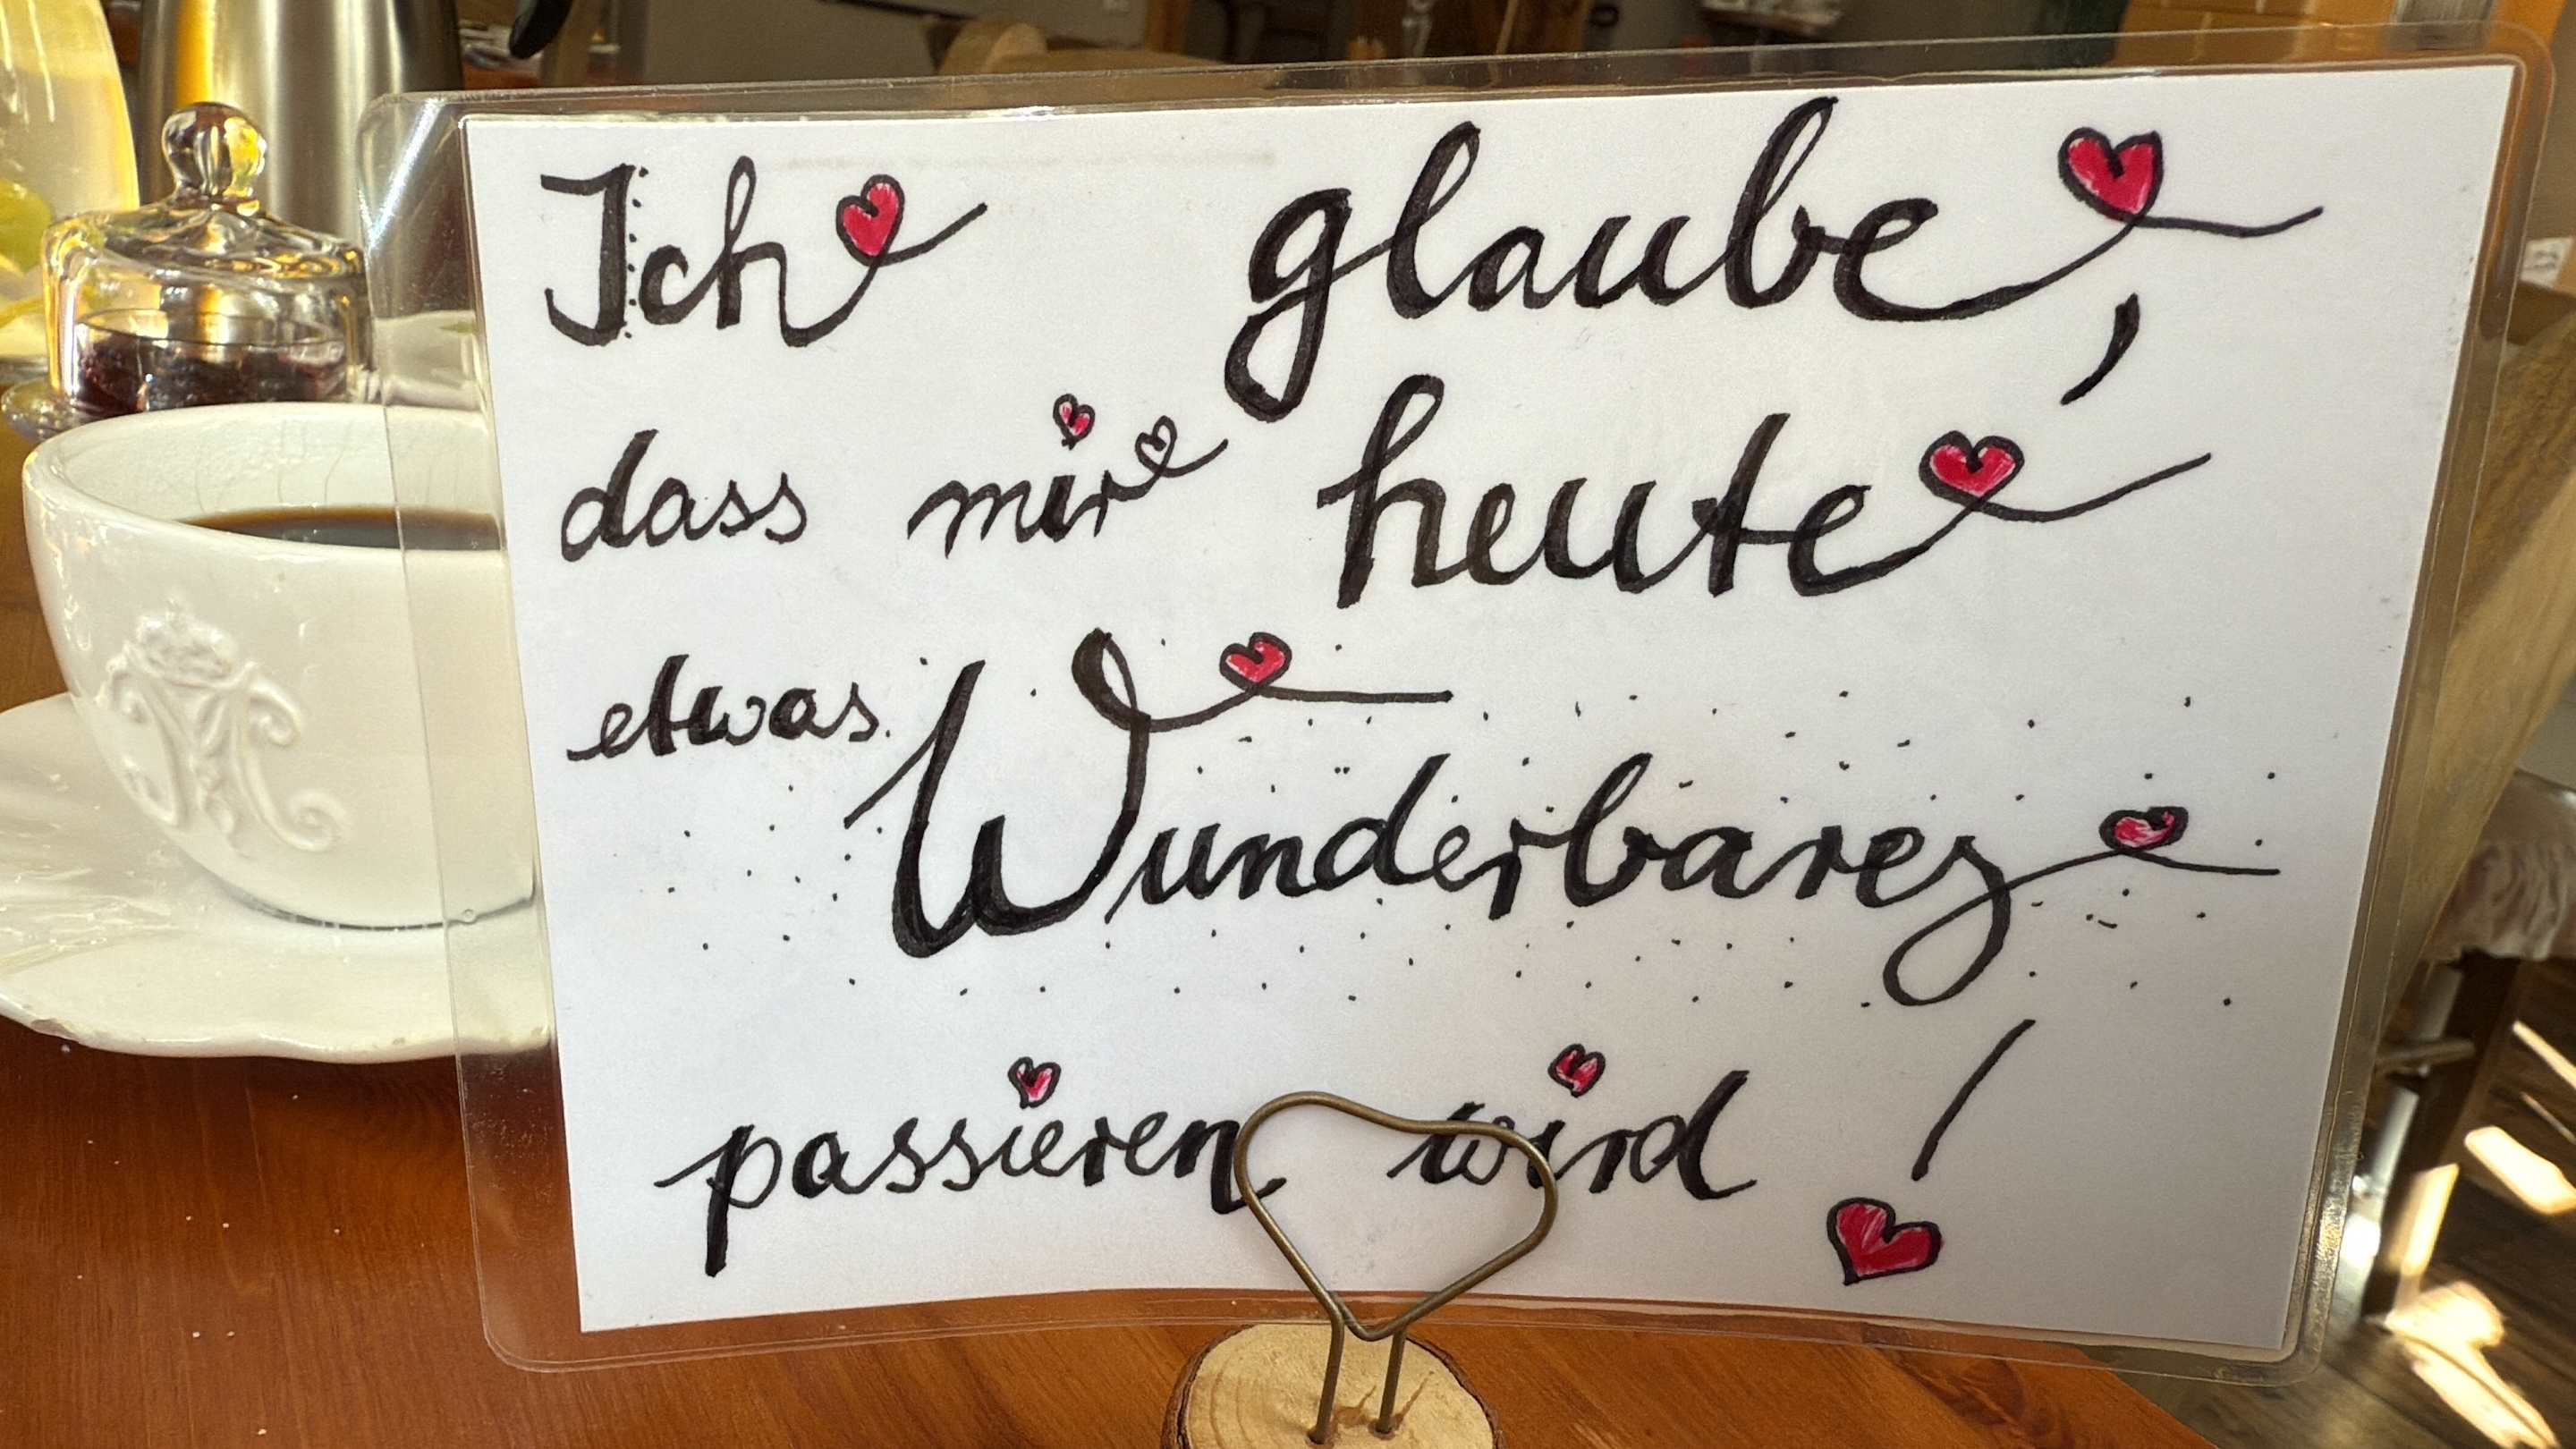 Ich glaube,
dass mir heute
etwas Wunderbares
passieren wird!